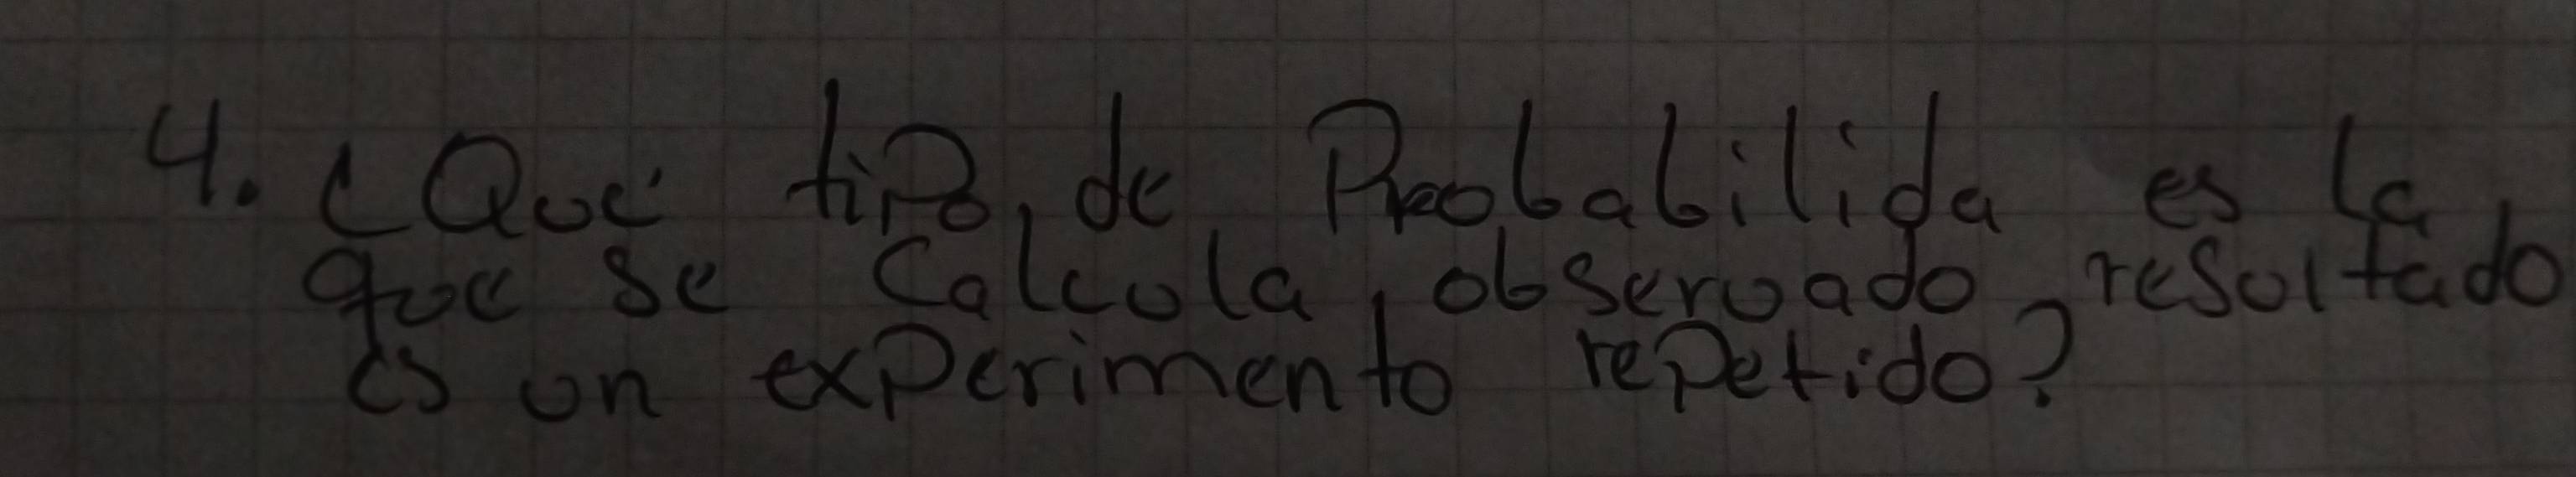 4. ¿Qué tipo, de Probabilida es la
que se Calcula, observado, resultado
es un experimento repetido?